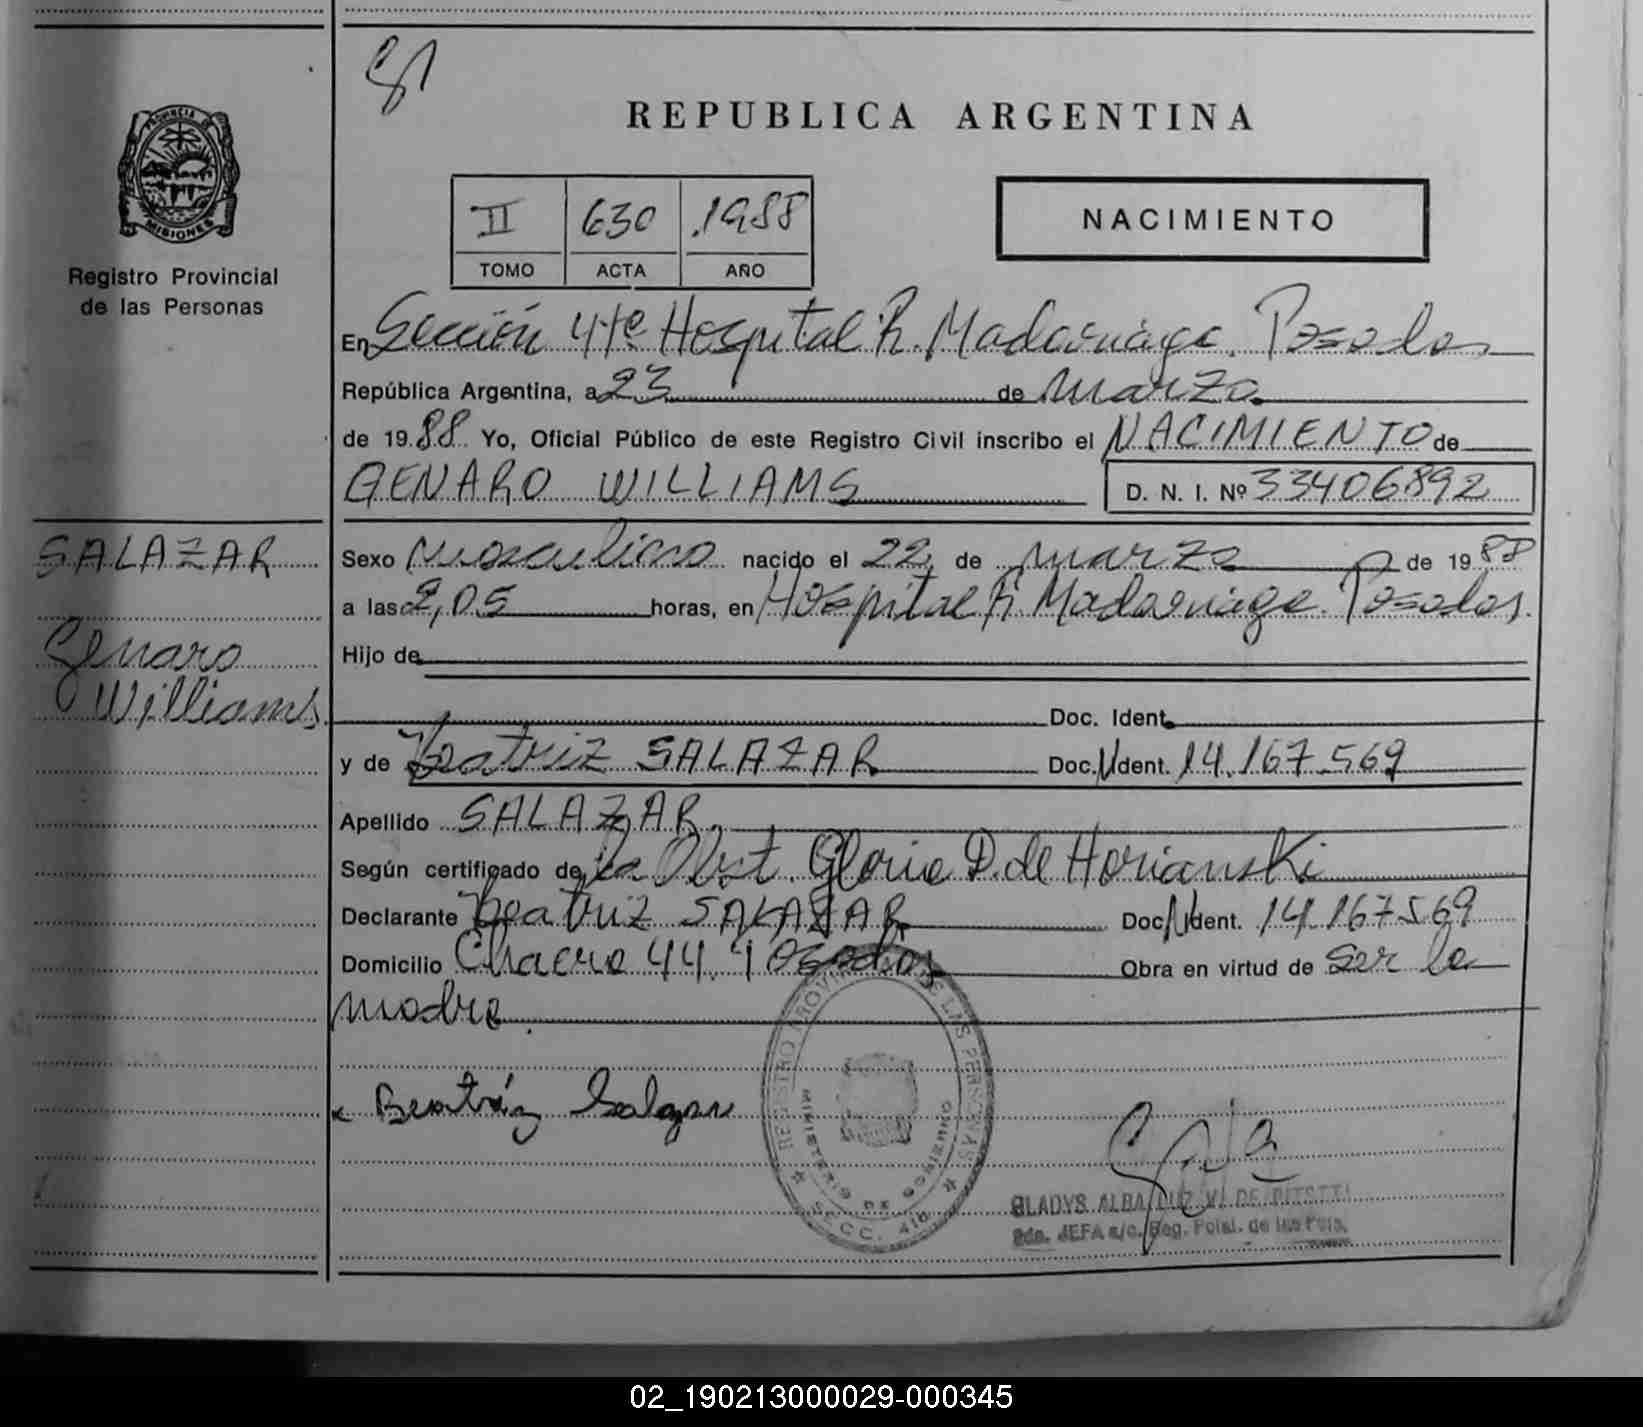 81
PROVINCIA DE
MISIONES
Registro Provincial
de las Personas
REPUBLICA ARGENTINA
II 630 1988
TOMO ACTA AÑO
NACIMIENTO
En Sección 4te Hospital R. Madariaga. Posadas
República Argentina, a 23 de marzo
de 1988 Yo, Oficial Público de este Registro Civil inscribo el NACIMIENTO de
GENARO WILLIAMS D. N. I. Nº 33406892
SALAZAR
Genaro
Williams
Sexo masculino nacido el 22 de marzo de 1988
a las 2,05 horas, en Hospital R. Madariaga. Posadas.
Hijo de
Doc. Ident.
y de Beatriz SALAZAR Doc. Ident. 14.167.569
Apellido SALAZAR
Según certificado de la Obst. Gloria D. de Horianski
Declarante Beatriz SALAZAR Doc. Ident. 14.167569
Domicilio Chacra 44. Posadas Obra en virtud de ser la
madre.
Beatríz Salazar
REGISTRO PROVINCIAL DE LAS PERSONAS
MINISTERIO DE GOBIERNO
SECC. 4ta
GLADYS ALBA LUZ V. DE
2da. JEFA a/c. Reg. Pcial. de las Pers.
02_190213000029-000345